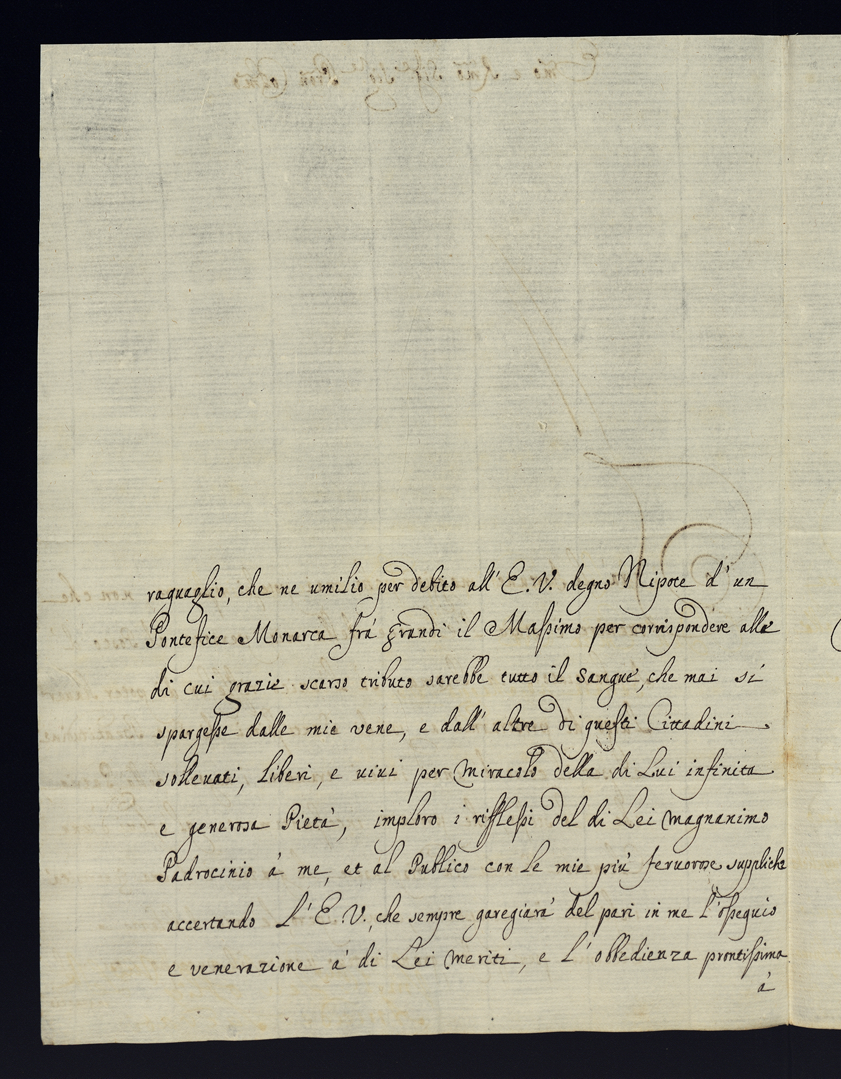 raguaglio, che ne umilio per debito all' E. V. degno Nipote d' un
Pontefice Monarca frà grandi il Massimo per corrispondere alle
di cui grazie scarso tributo sarebbe tutto il sangue, che mai si
spargesse dalle mie vene, e dall' altre di questi Cittadini
solleuati, liberi, e uiui per miracolo della di Lui infinita
e generosa Pietà, imploro i riflessi del di Lei magnanimo
Padrocinio à me, et al Publico con le mie più feruorose suppliche
accertando l' E. V., che sempre garegiarà del pari in me l'ossequio
e venerazione à di Lei meriti, e l' obbedienza prontissima
à